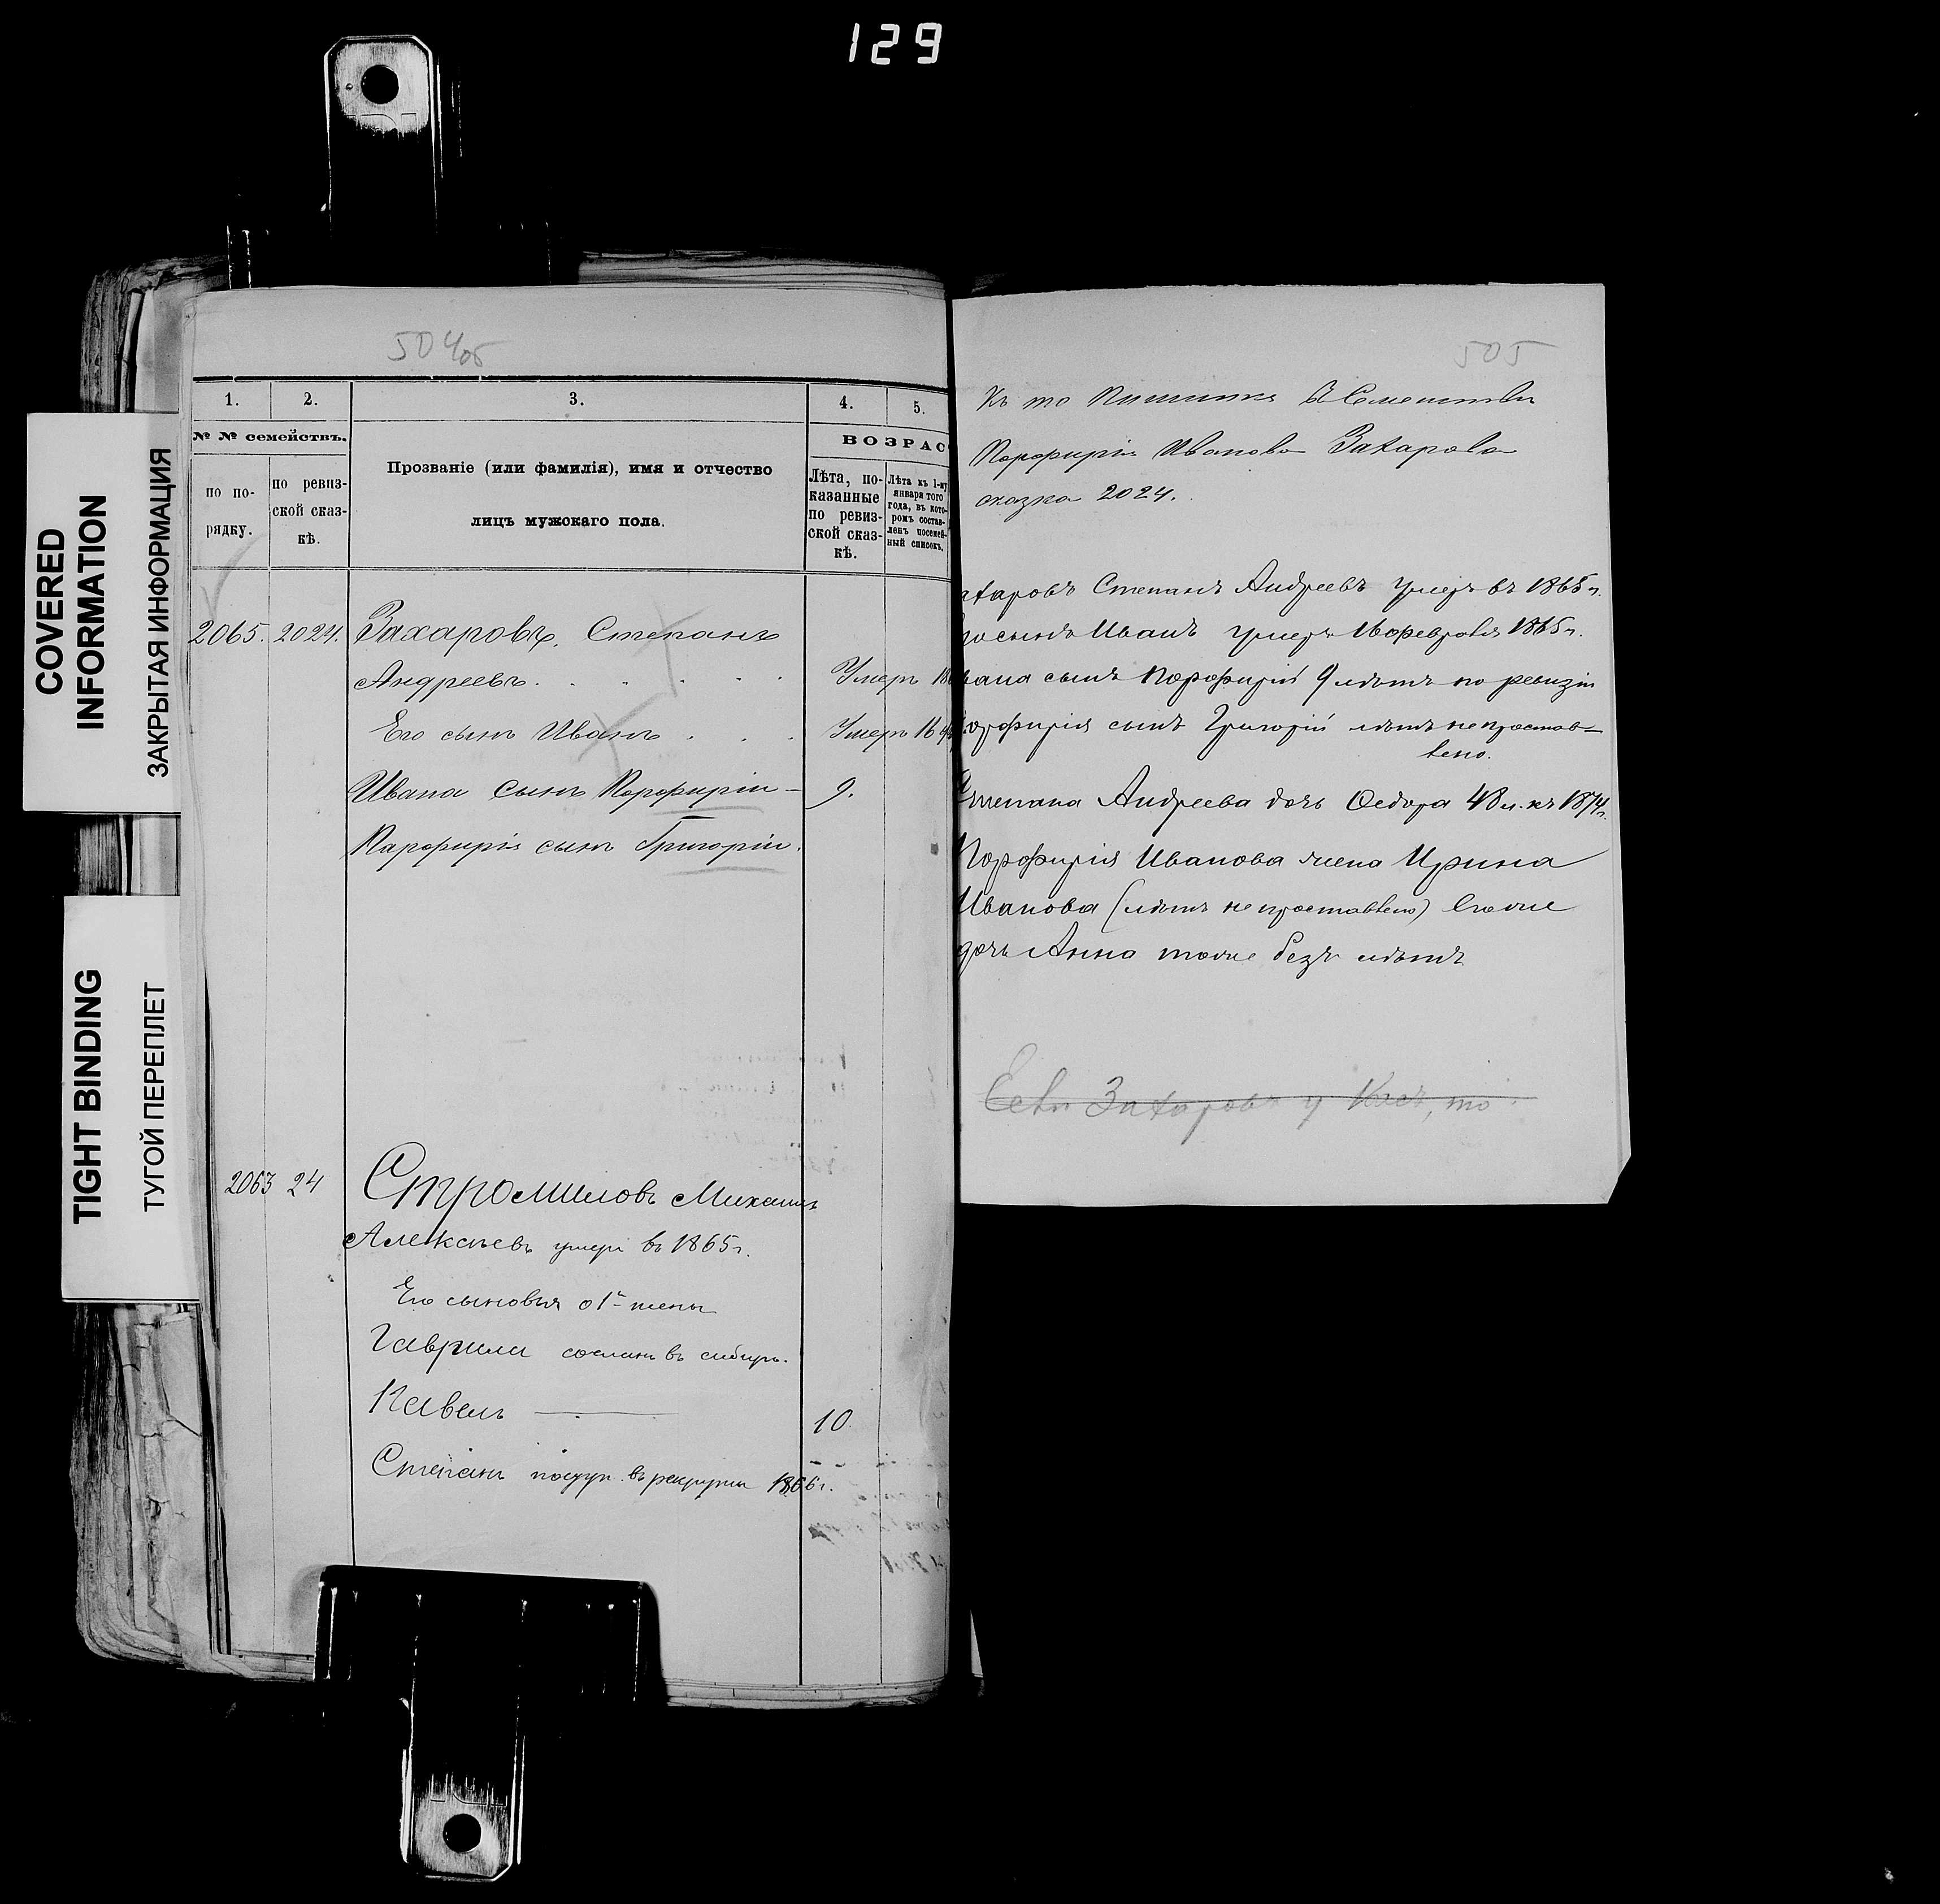 129
COVERED
INFORMATION
ЗАКРЫТАЯ ИНФОРМАЦИЯ
TIGHT BINDING
ТУГОЙ ПЕРЕПЛЕТ
504об
1. 2. 3. 4. 5.
№ № семействъ.
ВОЗРАС
по по-
рядку.
по ревиз-
ской сказ-
кѣ.
Прозваніе (или фамилія), имя и отчество
лицъ мужскаго пола.
Лѣта, по-
казанные
по ревиз-
ской сказ-
кѣ.
Лѣта къ 1-му
января того
года, въ кото-
ромъ состав-
ленъ посемей-
ный списокъ.
2065. 2024. Захаровъ, Степанъ
Андреевъ. Умеръ 18
Его сынъ Иванъ Умеръ 16
Ивана сынъ Порфирій - 9.
Парфирія сынъ Григорій.
2063 24 Стромиловъ Михаилъ
Алексѣевъ умеръ въ 1865г.
Его сыновья о 1й жены
Гаврила сосланъ въ сибирь.
Павелъ — 10.
Степанъ поступ. въ рекруты 1866г.
505
Порфирія Иванова Захарова
сказка 2024.
ахаровъ Степанъ Андреевъ умеръ въ 1865г.
го сынъ Иванъ умеръ 16 февраля 1865г.
вана сынъ Порфирій 9 лѣтъ по ревизіи
орфирія сынъ Григорій лѣтъ не простав-
лено.
Степана Андреева дочь Федора 48 л. къ 1874г.
Порфирія Иванова жена Ирина
Иванова (лѣтъ не проставлено) его же
дочь Анна тоже безъ лѣтъ
Если Захаровъ у Васъ, то